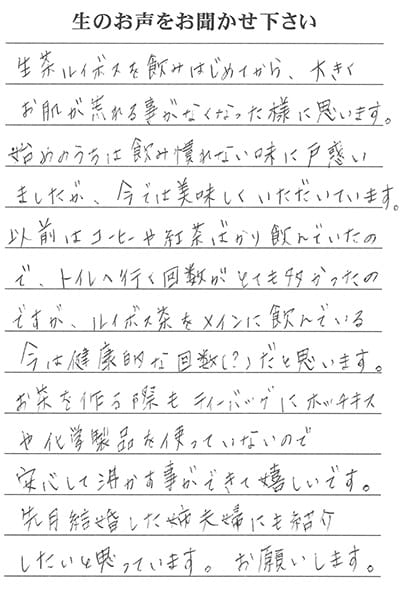 生のお声をお聞かせ下さい
生茶ルイボスを飲みはじめてから、大きく
お肌が荒れる事がなくなった様に思います。
始めのうちは飲み慣れない味に戸惑い
ましたが、今では美味しくいただいています。
以前はコーヒーや紅茶ばかり飲んでいたの
で、トイレへ行く回数がとても多かったの
ですが、ルイボス茶をメインに飲んでいる
今は健康的な回数(?)だと思います。
お茶を作る際もティーバッグにホッチキス
や化学製品を使っていないので
安心して沸かす事ができて嬉しいです。
先月結婚した姉夫婦にも紹介
したいと思っています。お願いします。